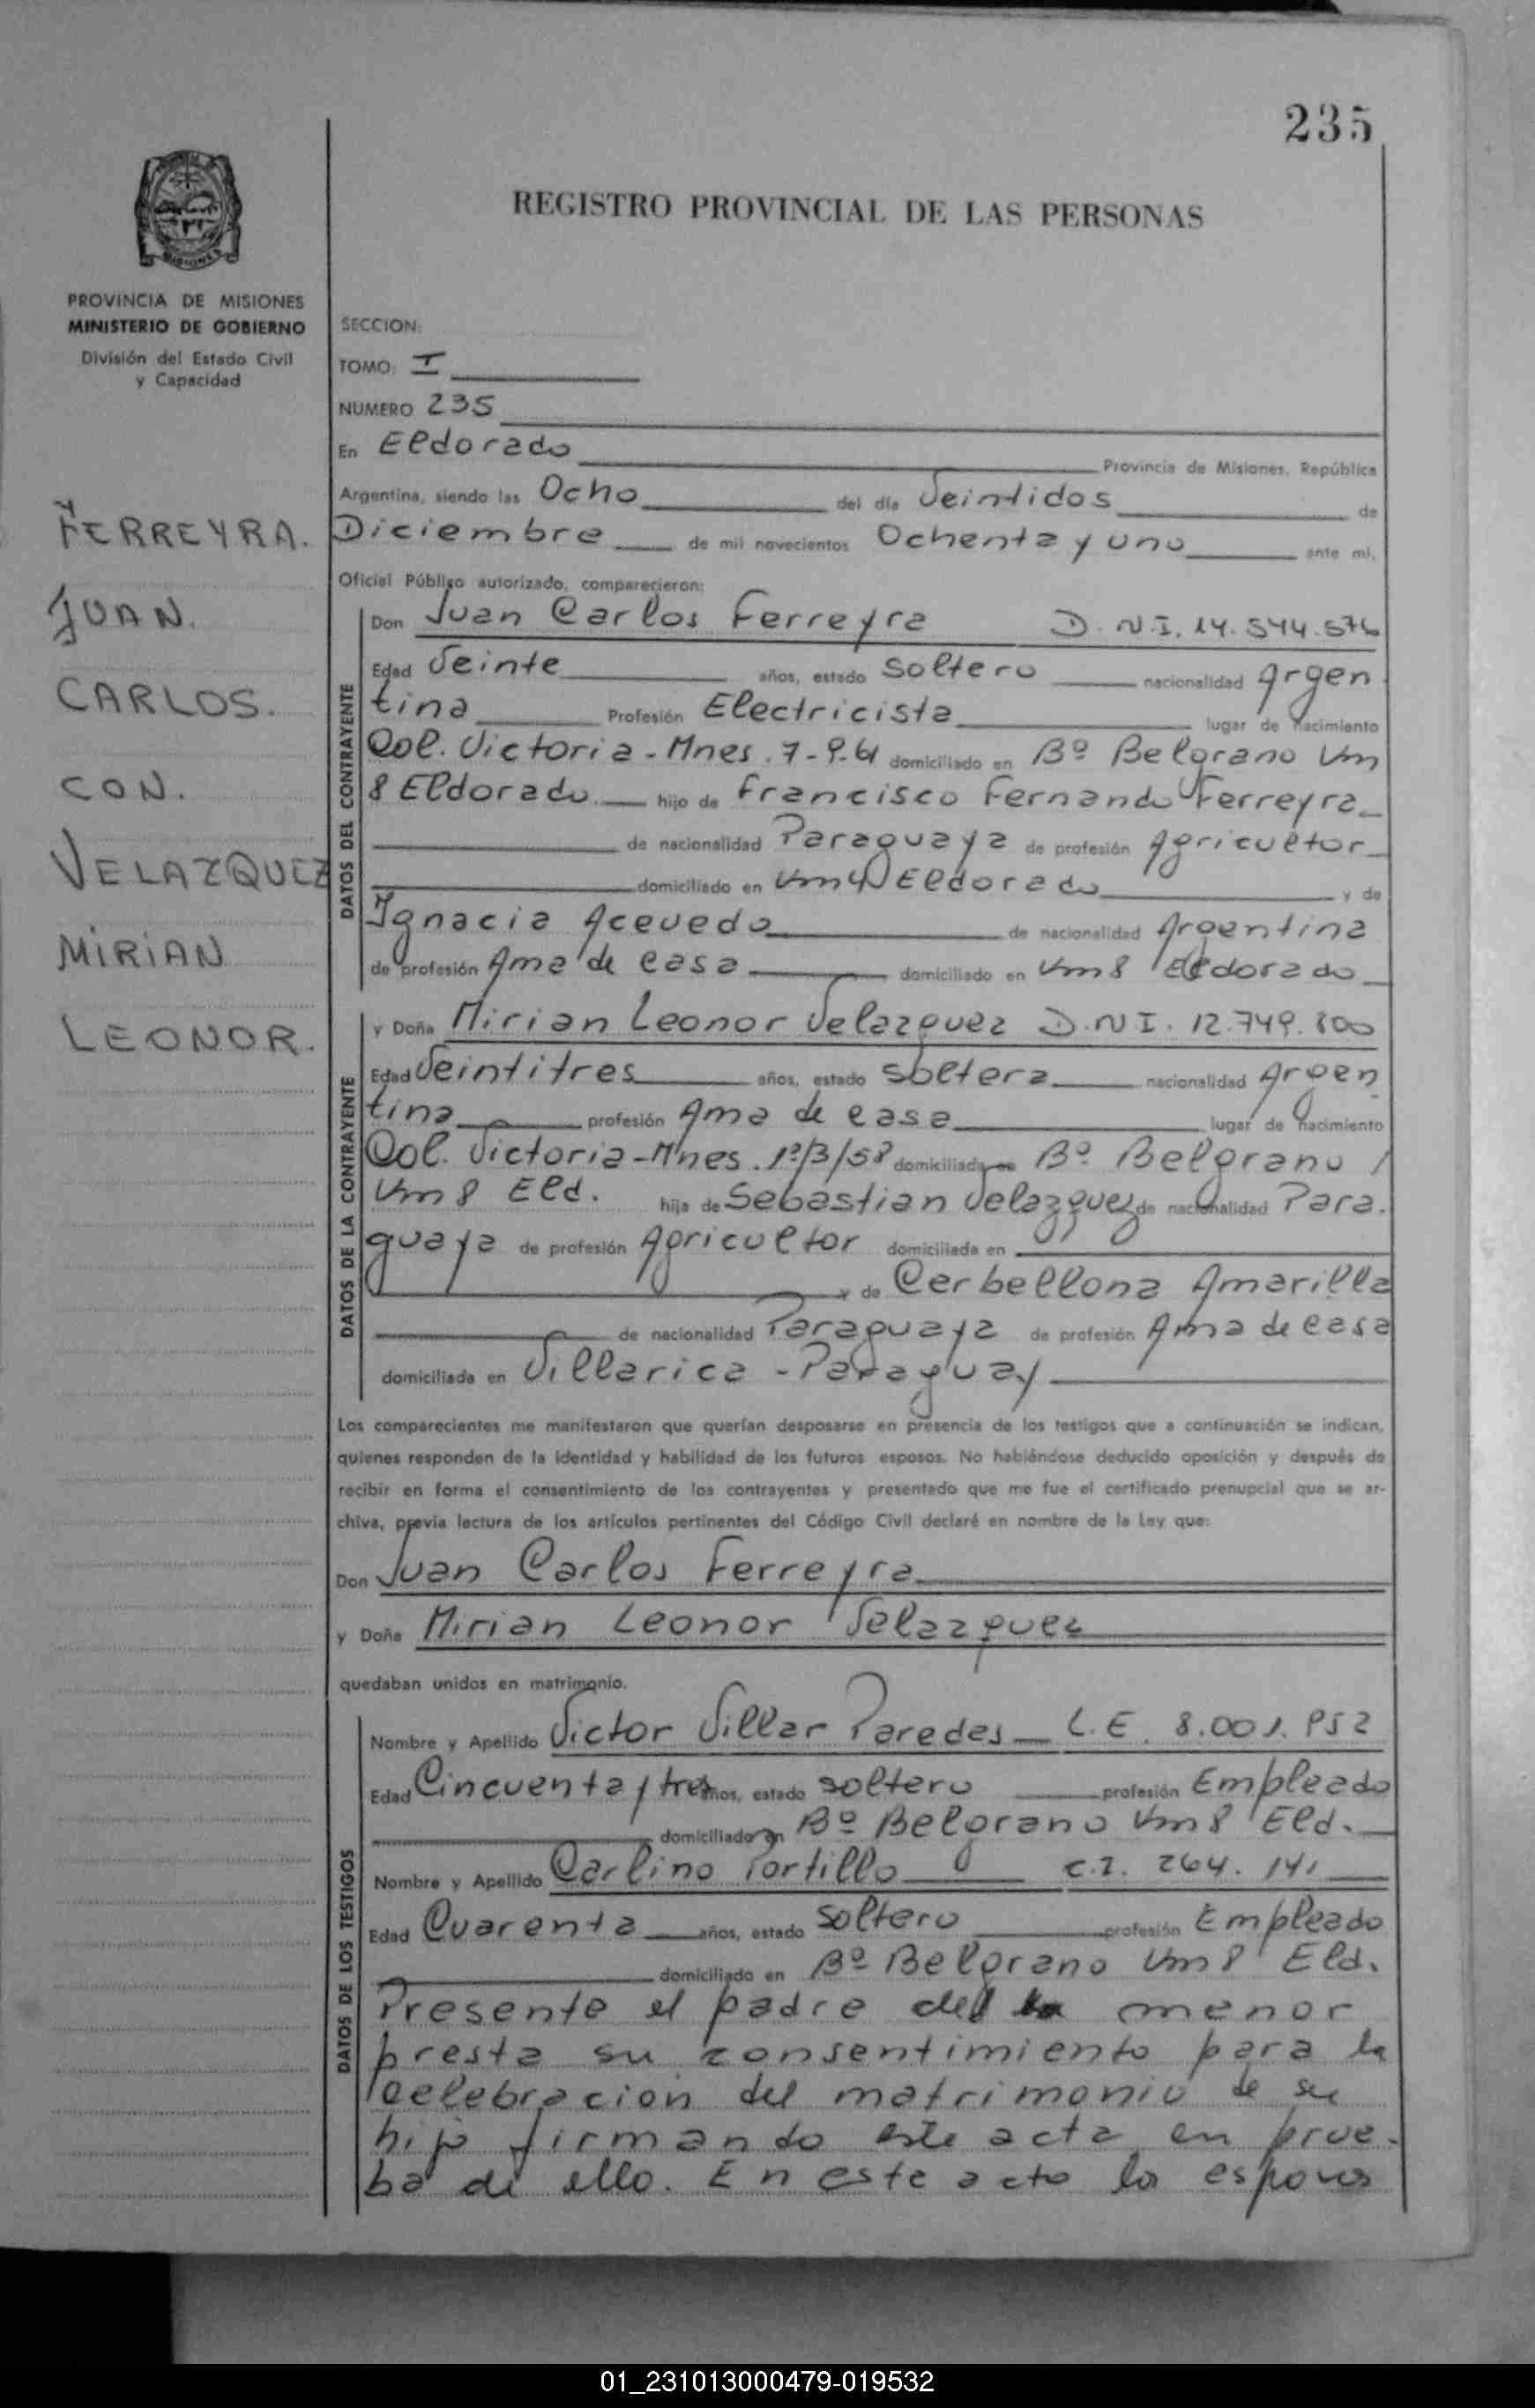 235
REGISTRO PROVINCIAL DE LAS PERSONAS
PROVINCIA DE MISIONES
MINISTERIO DE GOBIERNO
División del Estado Civil
y Capacidad
FERREYRA.
JUAN.
CARLOS.
CON.
VELAZQUEZ
MIRIAN
LEONOR.
SECCION:
TOMO: I
NUMERO 235
En Eldorado Provincia de Misiones, República
Argentina, siendo las Ocho del día Veintidos de
Diciembre de mil novecientos Ochenta y uno ante mí,
Oficial Público autorizado, comparecieron:
DATOS DEL CONTRAYENTE
Don Juan Carlos Ferreyra D.N.I. 14.544.576
Edad Veinte años, estado Soltero nacionalidad Argen
tina Profesión Electricista lugar de nacimiento
Col. Victoria - Mnes. 7-9-61 domiciliado en Bº Belgrano Km
8 Eldorado hijo de Francisco Fernando Ferreyra
de nacionalidad Paraguaya de profesión Agricultor
domiciliado en Km Eldorado y de
Ignacia Acevedo de nacionalidad Argentina
de profesión Ama de casa domiciliado en Km 8 Eldorado
DATOS DE LA CONTRAYENTE
y Doña Mirian Leonor Velazquez D.N.I. 12.749.800
Edad Veintitres años, estado Soltera nacionalidad Argen
tina profesión Ama de casa lugar de nacimiento
Col. Victoria - Mnes. 1º/3/58 domiciliada en Bº Belgrano /
Km 8 Eld. hija de Sebastian Velazquez de nacionalidad Para.
guaya de profesión Agricultor domiciliada en
y de Cerbellona Amarilla
de nacionalidad Paraguaya de profesión Ama de casa
domiciliada en Villarica - Paraguay
Los comparecientes me manifestaron que querían desposarse en presencia de los testigos que a continuación se indican,
quienes responden de la identidad y habilidad de los futuros esposos. No habiéndose deducido oposición y después de
recibir en forma el consentimiento de los contrayentes y presentado que me fue el certificado prenupcial que se ar-
chiva, previa lectura de los artículos pertinentes del Código Civil declaré en nombre de la Ley que:
Don Juan Carlos Ferreyra
y Doña Mirian Leonor Velazquez
quedaban unidos en matrimonio.
DATOS DE LOS TESTIGOS
Nombre y Apellido Victor Villar Paredes L.E. 8.001.952
Edad Cincuenta y tres años, estado soltero profesión Empleado
domiciliado en Bº Belgrano Km 8 Eld.
Nombre y Apellido Carlino Portillo C.I. 264.141
Edad Cuarenta años, estado Soltero profesión Empleado
domiciliado en Bº Belgrano Km 8 Eld.
Presente el padre del menor
presta su consentimiento para la
celebracion del matrimonio de su
hijo firmando este acta en prue-
ba de ello. En este acto los esposos
01_231013000479-019532